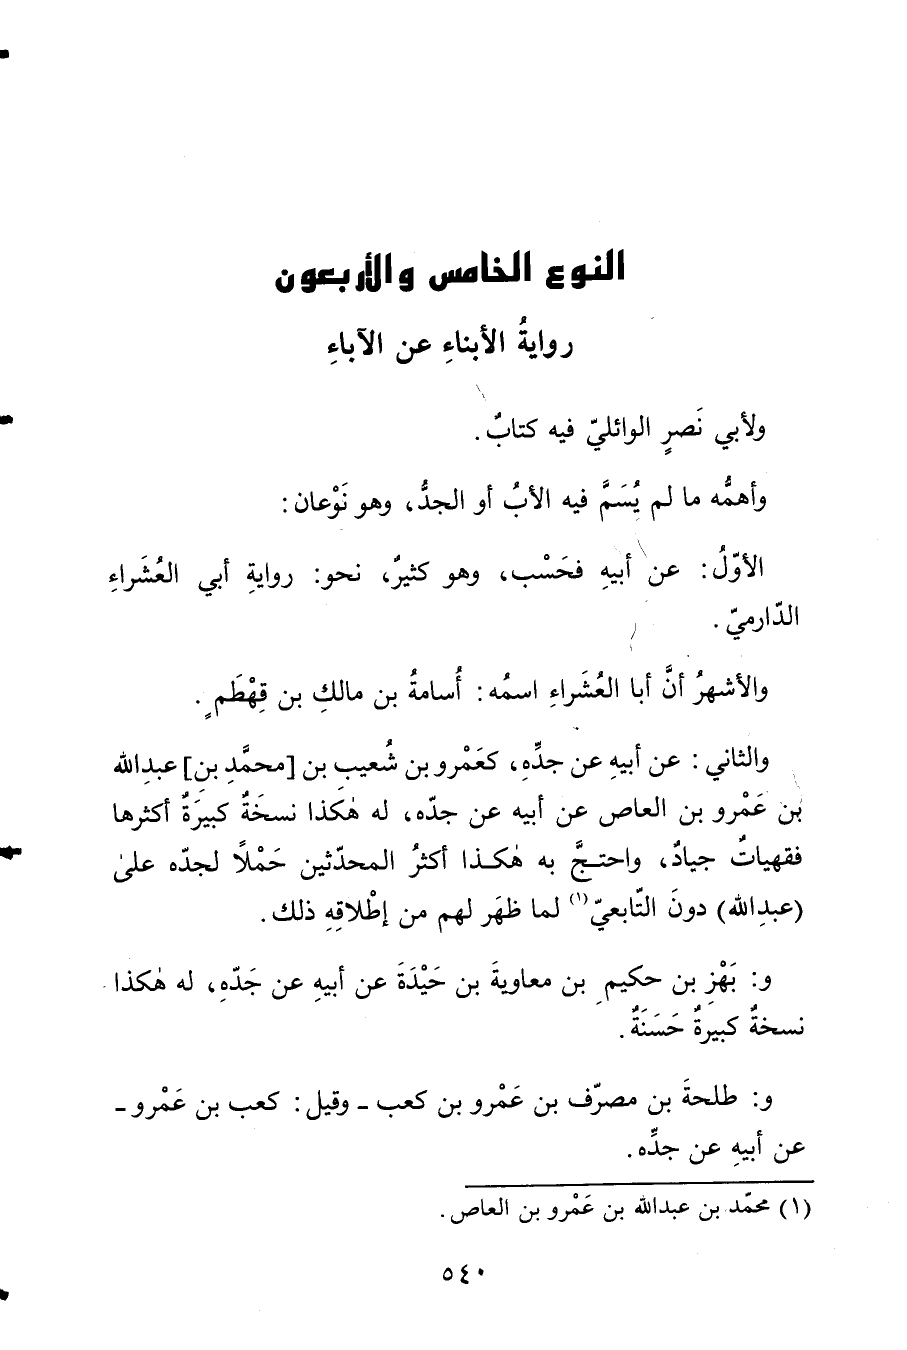 النوع الخامس والأربعون
روايةُ الأبناءِ عن الآباءِ
ولأبي نَصرٍ الوائليّ فيه كتابٌ.
وأهمُّه ما لم يُسَمَّ فيه الأبُ أو الجدُّ، وهو نَوْعان:
الأوّلُ: عن أبيهِ فحَسْب، وهو كثيرٌ، نحو: روايةِ أبي العُشَراءِ
الدّارميّ.
والأشهرُ أنَّ أبا العُشَراءِ اسمُه: أُسامةُ بن مالكِ بن قِهْطَمٍ.
والثاني: عن أبيهِ عن جدِّهِ، كعَمْرو بن شُعيبِ بن [محمَّدِ بن] عبدِالله
بن عَمْرو بن العاص عن أبيه عن جدّه، له هٰكذا نسخَةٌ كبيرَةٌ أكثرها
فقهياتٌ جيادٌ، واحتجَّ به هٰكذا أكثرُ المحدّثين حَمْلاً لجدّه علىٰ
(عبدِالله) دونَ التّابعيّ(١) لما ظهَر لهم من إطْلاقِهِ ذلك.
و: بَهْزِ بن حكيمِ بن معاويةَ بن حَيْدَةَ عن أبيهِ عن جَدّهِ، له هٰكذا
نسخةٌ كبيرةٌ حَسَنَةٌ.
و: طلحةَ بن مصرّف بن عَمْرو بن كعب ـ وقيل: كعب بن عَمْرو ـ
عن أبيهِ عن جدِّه.
(١) محمّد بن عبدالله بن عَمْرو بن العاص.
٥٤٠